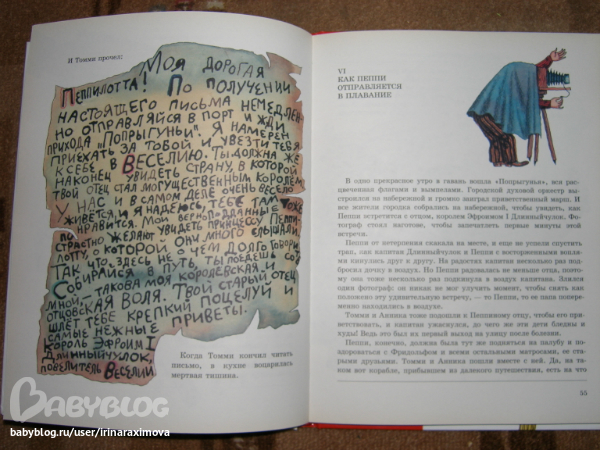 И Томми прочел:
Моя дорогая
Пеппилотта! По получении
настоящего письма немедлен
но отправляйся в порт и жди
прихода «Попрыгуньи». Я намерен
приехать за тобой и увезти тебя
к себе в Веселию. Ты должна же
наконец увидеть страну, в которой
твой отец стал могущественным королем
У нас и в самом деле очень весело
живется, и я надеюсь, тебе там тоже
понравится. Мои верноподданные
страстно желают увидеть принцессу Пеппи-
лотту, о которой они много слышали
Так что, здесь не о чем долго говорить
Собирайся в путь, ты поедешь со
мной, – такова моя королевская и
отцовская воля. Твой старый отец
шлет тебе крепкий поцелуй и
самые нежные приветы.
Король Эфроим I
Длинныйчулок,
повелитель Веселии
Когда Томми кончил читать
письмо, в кухне воцарилась
мертвая тишина.
VI
КАК ПЕППИ
ОТПРАВЛЯЕТСЯ
В ПЛАВАНИЕ
В одно прекрасное утро в гавань вошла «Попрыгунья», вся рас-
цвеченная флагами и вымпелами. Городской духовой оркестр вы-
строился на набережной и громко заиграл приветственный марш. И
все жители города собрались на набережной, чтобы увидеть, как
Пеппи встретится с отцом, королем Эфроимом I Длинныйчулок. Фо-
тограф стоял наготове, чтобы запечатлеть первые минуты этой
встречи.
Пеппи от нетерпения скакала на месте, и еще не успели спустить
трап, как капитан Длинныйчулок и Пеппи с восторженными воплями
кинулись друг к другу. На радостях капитан несколько раз под-
бросил дочку в воздух. Но Пеппи радовалась не меньше отца, поэто-
му она тоже несколько раз подкинула в воздух капитана. Злился
один фотограф: он никак не мог улучить момент, чтобы снять как
положено эту удивительную встречу, — то Пеппи, то ее папа попере-
менно находились в воздухе.
Томми и Анника тоже подошли к Пеппиному отцу, чтобы его при-
ветствовать, и капитан ужаснулся, до чего же эти дети бледны и ху-
ды! Ведь это был их первый выход на улицу после болезни.
Пеппи, конечно, должна была тут же подняться на палубу и по-
здороваться с Фридольфом и всеми остальными матросами, ее ста-
рыми друзьями. Томми и Анника пошли вместе с ней. Да, на та-
ком вот корабле, прибывшем из далекого путешествия, есть на что
55
BABYBLOG
babyblog.ru/user/irinaraximova